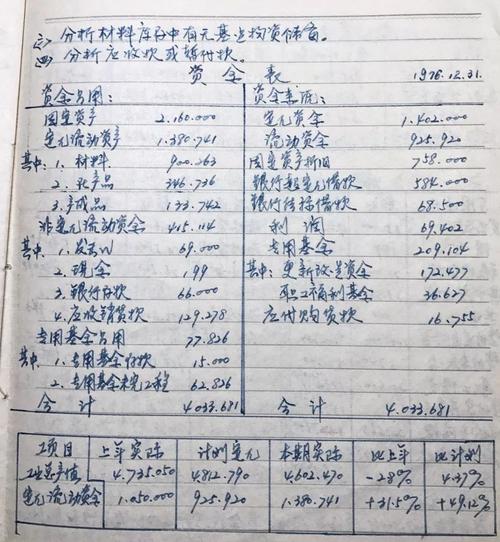 ㈢、分析材料库存中有无基建物资储备。
㈣、分析应收款或暂付款。
资金表 1976.12.31.
资金占用： 资金来源：
固定资产 2.160.000 定允资金 1.402.000
定允流动资产 1.380.741 流动资金 925.920
其中：1、材料 900.263 固定资产折旧 758.000
2、在产品 346.736 银行超定允借款 584.000
3、产成品 133.742 银行结算借款 68.500
非定允流动资金 415.114 利润 69.402
其中：1、发出 69.000 专用基金 209.104
2、现金 1,99 其中：更新改造资金 172.477
3、银行存款 66.000 职工福利基金 36.627
4、应收销货款 129.278 应付购货款 16.755
专用基金占用 77.826
其中：1、专用基金存款 15.000
2、专用基金未完工程 62.826
合计 4.033.681 合计 4.033.681
项目 上年实际 计划定允 本期实际 比上年 比计划
工业总产值 4.735.050 4.812.790 4.602.470 -2.8% 4.37%
定允流动资金 1.050.000 925.920 1.380.741 +31.5% +49.12%